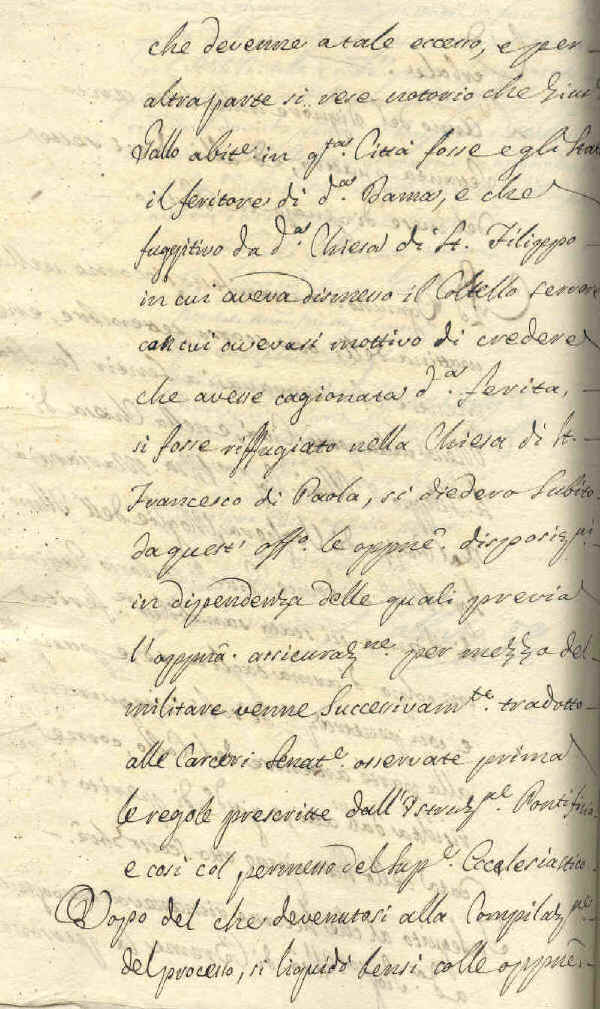 che devenne a tale eccesso, e per
altra parte si rese notorio che
Gallo abit.e in q.ta Città fosse egli
il feritore di d.a Dama, e che
fuggitivo da d.a Chiesa di S. Filippo
in cui aveva dismesso il Coltello
con cui avevasi mottivo di credere
che avesse cagionata d.a ferita,
si fosse riffugiato nella Chiesa di S.
Francesco di Paola, si diedero subito
da quest' off.o le oppnē. disposiz.ni
in dipendenza delle quali previa
l'oppnā. assicuraz.ne per mezzo del
militare venne successivam.te tradotto
alle Carceri Senat.e osservate prima
le regole prescritte dall'Istruz.ne Pontificia
e così col permesso del Sup.e Ecclesiastico
Dopo del che devenutosi alla Compilaz.ne
del processo, si liquidò bensì colle oppnē.